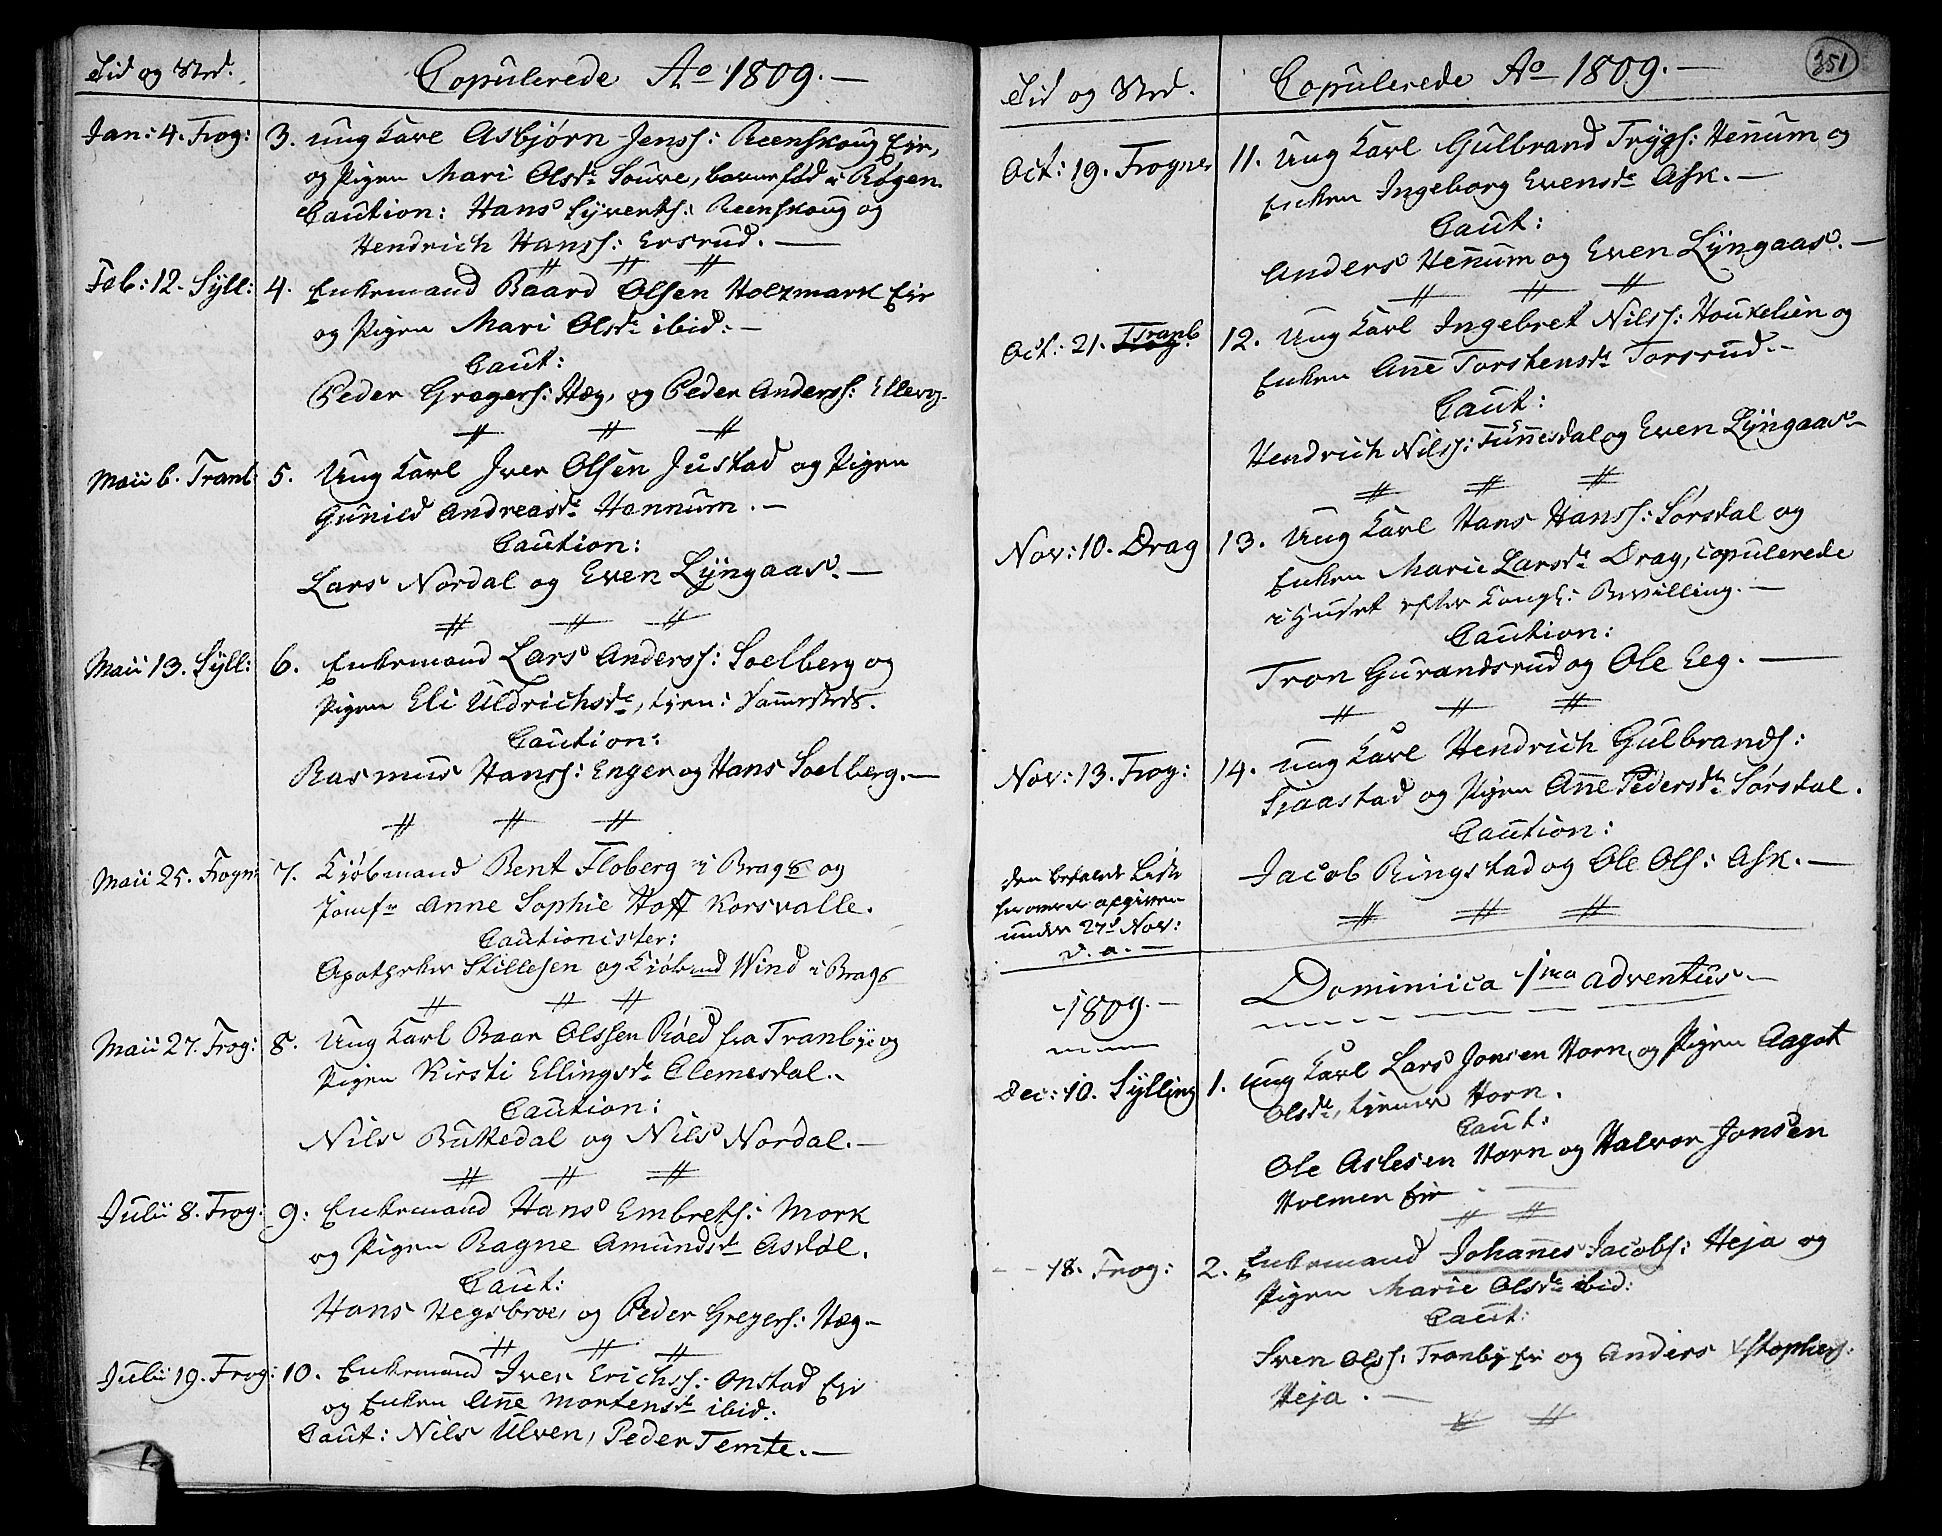 Tid og Sted.
Copulerede Ao 1809.—
Jan: 4. Frog:
3. ung Karl Asbjørn Jenss: Reenskoug Eier,
og Pigen Mari Olsdr Souve, barnefød i Røgen.
Caution: Hans Syverts: Reenskoug og
Hendrich Hanss: Ersrud. —
Feb: 12. Syll:
4. Enkemand Baard Olsen Holzmark Eier
og Pigen Mari Olsdr ibid. —
Caut:
Peder Gregers: Hæg, og Peder Anderss:
Maii 6. Tranb:
5. Ung Karl Iver Olsen Justad og Pigen
Gunild Andreasdr Hannum. —
Caution:
Lars Nordal og Even Lÿngaas. —
Maii 13. Syll:
6. Enkemand Lars Anderss: Soelberg og
Pigen Eli Uldrichsdr, tjen: sammesteds.
Caution:
Rasmus Hanss: Enger og Hans Soelberg. —
Maii 25. Frogn:
7. Kiøbmand Bent Floberg i Brags og
Jomfr Anne Sophie Hoff Korsvalle.
Cautionister:
Apotheker Skillesen og Kiøbmd Wind i Brags
Maii 27. Frog:
8. Ung Karl Baar Olssen Røed fra Tranbye og
Pigen Kirsti Ellingsdr Clemesdal. —
Caution:
Nils Buttedal og Nils Nordal. —
Julii 8. Frog:
9. Enkemand Hans Embrets: Mork
og Pigen Ragne Amundsdr Asdøl.
Caut:
Hans Hegsbroe, og Peder Gregers: Hæg —
Julii 19. Frog:
10. Enkemand Iver Erichss: Onstad Eier
og Enken Ane Mortensdr ibid.
Caut: Nils Ulven, Peder Temte. —
351
Tid og Sted.
Copulerede Ao 1809. —
Oct: 19. Frogner
11. Ung Karl Gulbrand Trygs: Henum og
Enken Ingeborg Evensdr Ask. —
Caut:
Anders Henum og Even Lÿngaas. —
Oct: 21. Tranb
12. Ung Karl Ingebret Nilss: Houkelien og
Enken Ane Torstensdr Torsrud. —
Caut:
Hendrich Nilss: Tunnesdal og Even Lÿngaas —
Nov: 10. Drag
13. Ung Karl Hans Hanss: Sørsdal og
Enken Marie Larsdr Drag, copulerede
i Huset efter Kongl: Bevilling. —
Caution:
Tron Gurandsrud og Ole Eeg. —
Nov: 13. Frog:
14. ung Karl Hendrich Gulbrands:
Gjaastad og Pigen Ane Pedersdr Sørsdal.
Caution:
Jacob Ringstad og Ole Ols: Ask. —
den befalede Liste
herover afgiven
under 27d Nov:
d. a. —
1809. —
Dominica 1ma adventus —
Dec: 10. Sylling
1. Ung Karl Lars Jonsen Horn, og Pigen Aagot
Olsdr, tiener Horn.
Caut:
Ole Aslesen Horn og Halvor Jonsen
Holmen Eier
— 18. Frog:
2. Enkemand Johannes Jacobs: Heja og
Pigen Marie Olsdr ibid:
Caut:
Sven Olss: Tranby Ei og Anders Xstophers:
Heja. —
1